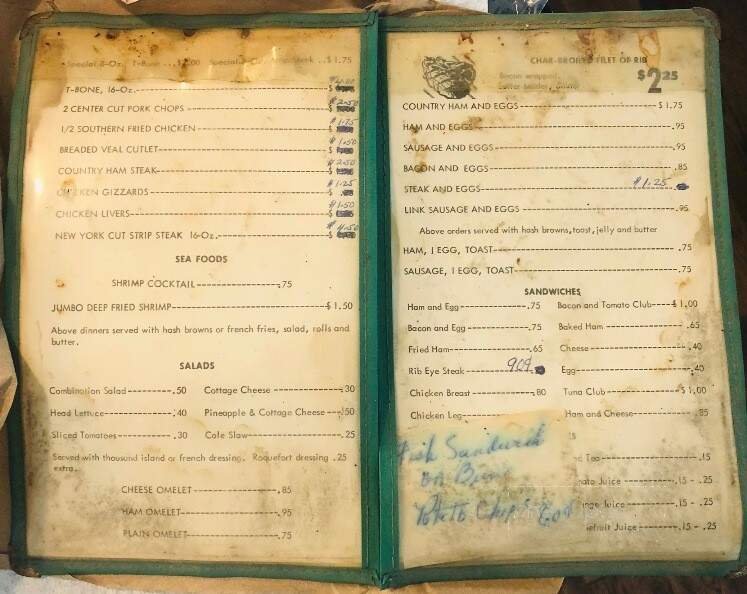 Special 8-Oz. T-Bone .. $ .00 Special $1.75
T-BONE, 16-Oz. $
2 CENTER CUT PORK CHOPS $ $2.50
1/2 SOUTHERN FRIED CHICKEN $ $1.75
BREADED VEAL CUTLET $ $1.50
COUNTRY HAM STEAK $ $2.50
CHICKEN GIZZARDS $ $1.25
CHICKEN LIVERS $ $1.50
NEW YORK CUT STRIP STEAK 16-Oz. $ $4.50
SEA FOODS
SHRIMP COCKTAIL .75
JUMBO DEEP FRIED SHRIMP $1.50
Above dinners served with hash browns or french fries, salad, rolls and
butter.
SALADS
Combination Salad .50 Cottage Cheese .30
Head Lettuce .40 Pineapple & Cottage Cheese .50
Sliced Tomatoes .30 Cole Slaw .25
Served with thousund island or french dressing. Roquefort dressing .25
extra.
CHEESE OMELET .85
HAM OMELET .95
PLAIN OMELET .75
CHAR-BROILED FILET OF RIB
Bacon wrapped, $2.25
COUNTRY HAM AND EGGS $1.75
HAM AND EGGS .95
SAUSAGE AND EGGS .95
BACON AND EGGS .85
STEAK AND EGGS $1.25
LINK SAUSAGE AND EGGS .95
Above orders served with hash browns,toast,jelly and butter
HAM, 1 EGG, TOAST .75
SAUSAGE, 1 EGG, TOAST .75
SANDWICHES
Ham and Egg .75 Bacon and Tomato Club $1.00
Bacon and Egg .75 Baked Ham .65
Fried Ham .65 Cheese .40
Rib Eye Steak 90¢ Egg .40
Chicken Breast .80 Tuna Club $1.00
Chicken Leg Ham and Cheese .85
Fish Sandwich
on Bun
Potato Chips 60¢
Tea .15
Juice .15 - .25
Juice .15 - .25
Juice .15 - .25